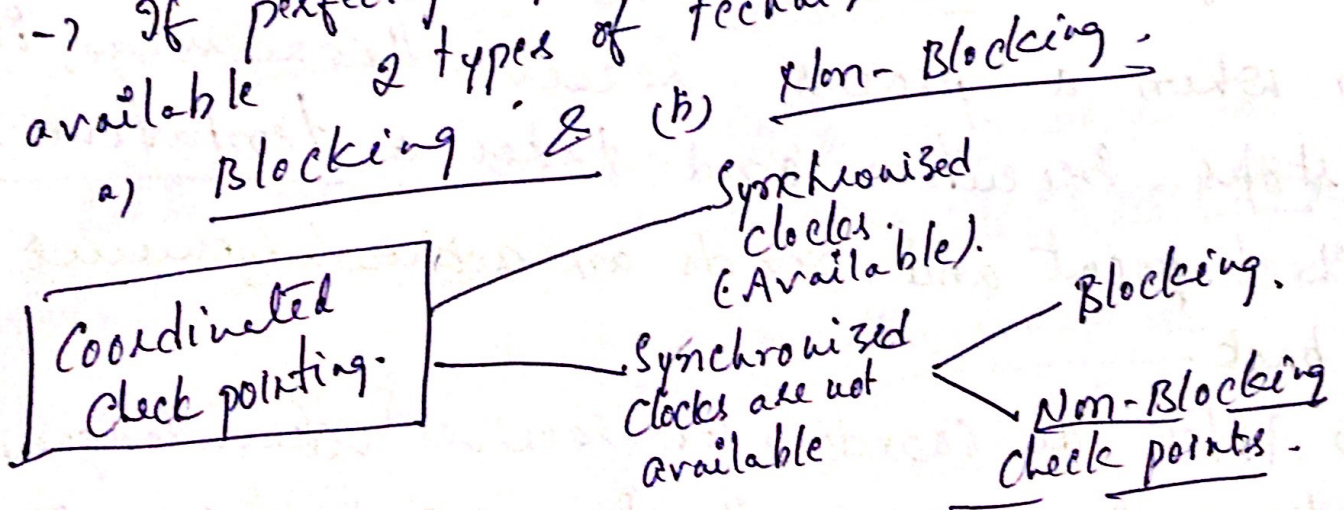 -> If
available 2 types of
a) Blocking & (b) Non-Blocking :
Coordinated
Check pointing.
Synchronized
Clocks.
(Available).
Synchronized
Clocks are not
available
Blocking.
Non-Blocking
Check points.